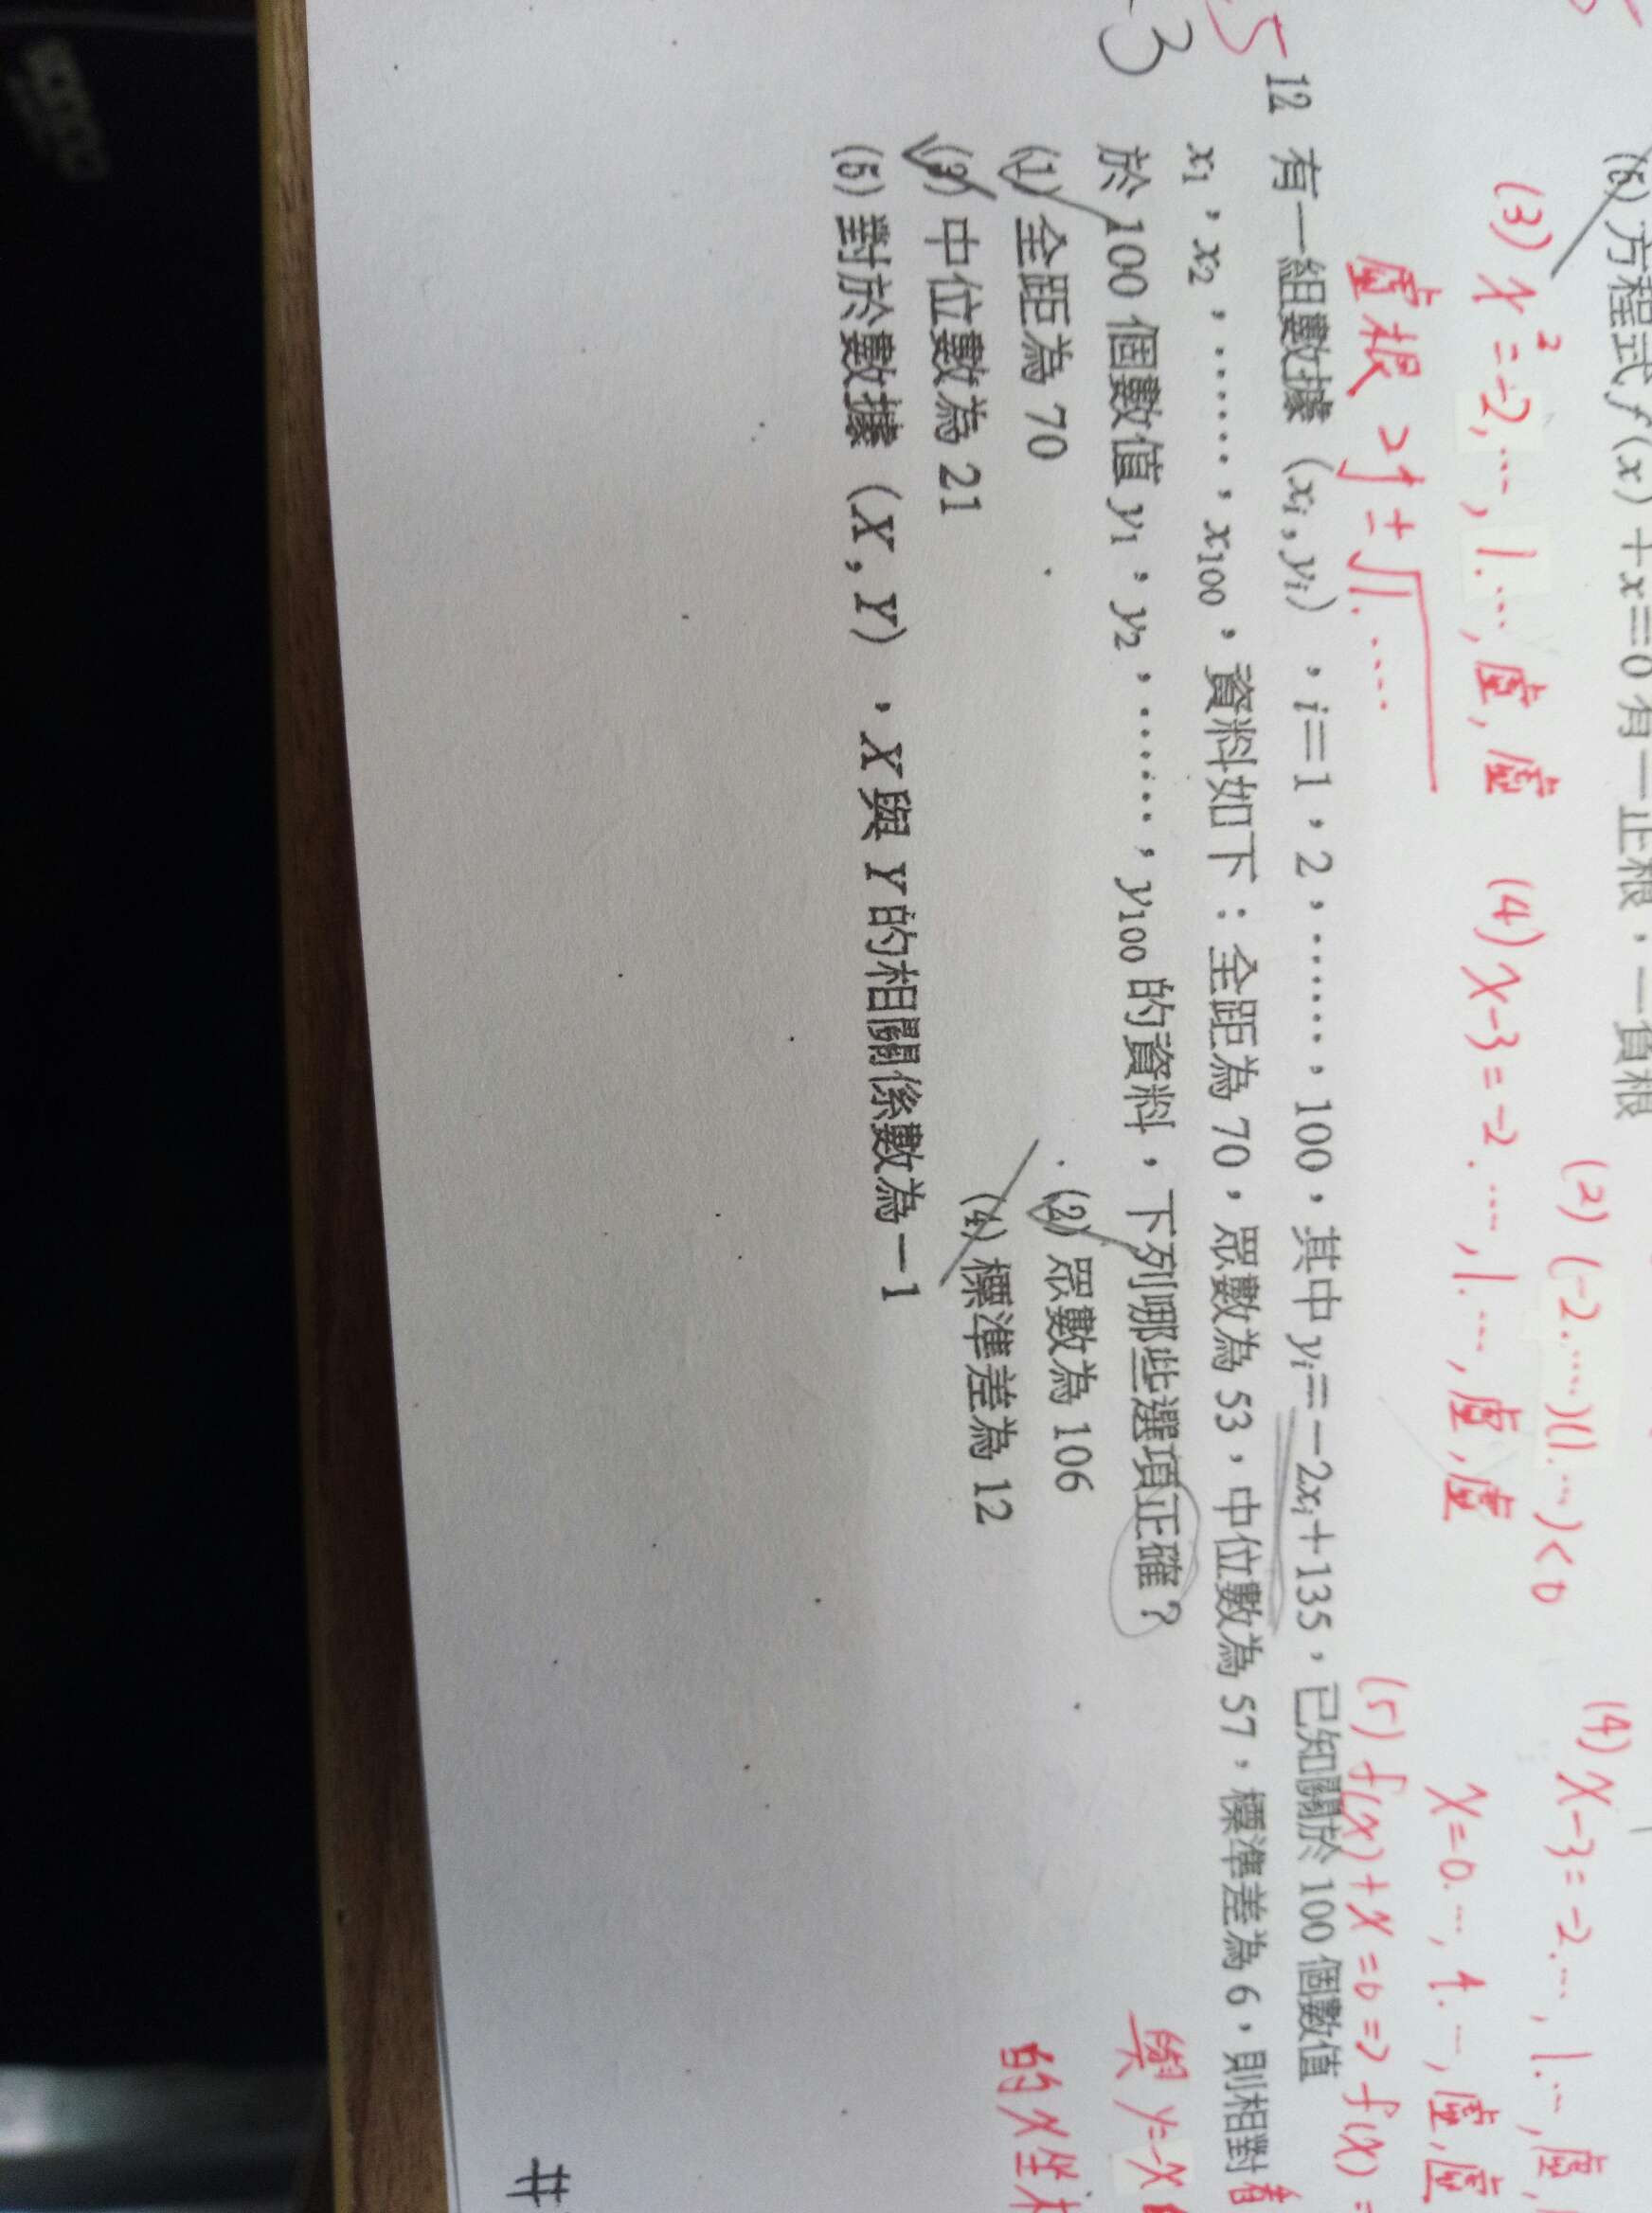 (5) 方程式 f(x)+x=0 有一正根，一負根
(2) (-2.…)(1.…)<0
(4) x-3=-2.…, 1.…, 虛,
(3) x²=-2.…, 1.…, 虛, 虛
(4) x-3=-2.…, 1.…, 虛, 虛
x=0.…, 4.…, 虛, 虛
虛根
(5) f(x)+x=0 => f(x)=
5
-3
12 有一組數據（xi , yi），i=1，2，……，100，其中 yi=-2xi+135，已知關於 100 個數值
x1，x2，……，x100，資料如下：全距為 70，眾數為 53，中位數為 57，標準差為 6，則相對
於 100 個數值 y1，y2，……，y100 的資料，下列哪些選項正確？
與 y=-x
(1) 全距為 70
(2) 眾數為 106
的 x 坐
(3) 中位數為 21
(4) 標準差為 12
(5) 對於數據（X , Y），X 與 Y 的相關係數為-1
#